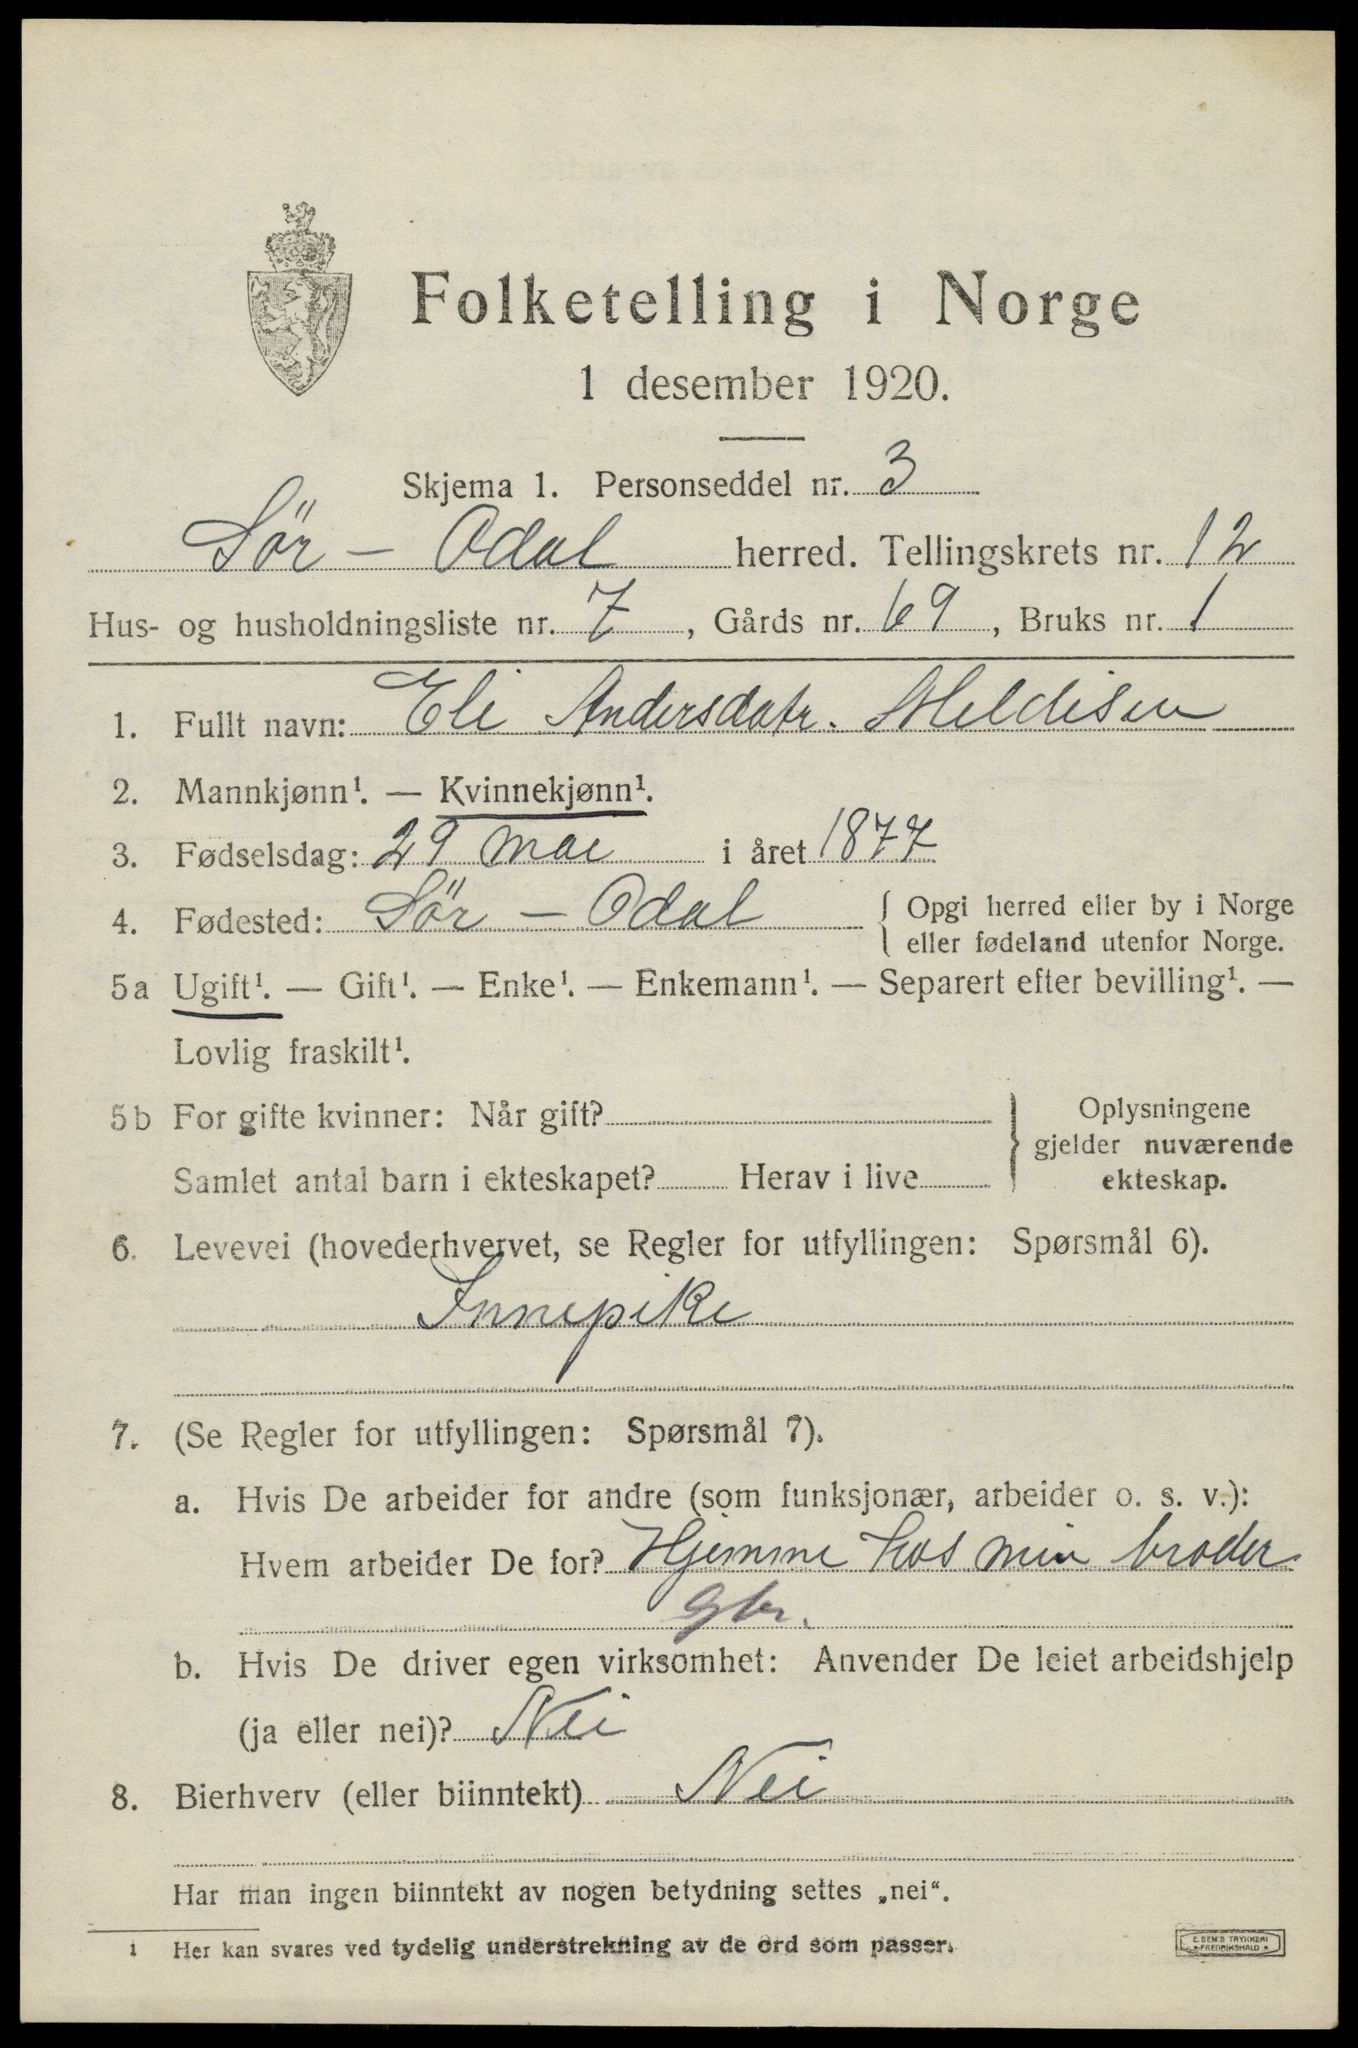 Folketelling i Norge
1 desember 1920.
Skjema 1. Personseddel nr. 3
Sör - Odal herred. Tellingskrets nr. 12
Hus- og husholdningsliste nr. 7, Gårds nr. 69, Bruks nr. 1
1. Fullt navn: Eli Andersdatr. Meldisen
2. Mannkjønn¹. — Kvinnekjønn¹.
3. Fødselsdag: 29 mai i året 1877
4. Fødested: Sör - Odal { Opgi herred eller by i Norge
eller fødeland utenfor Norge.
5a Ugift¹. — Gift¹. — Enke¹. — Enkemann¹. — Separert efter bevilling¹. —
Lovlig fraskilt¹.
5b For gifte kvinner: Når gift?
Samlet antal barn i ekteskapet? Herav i live
} Oplysningene
gjelder nuværende
ekteskap.
6. Levevei (hovederhvervet, se Regler for utfyllingen: Spørsmål 6).
Innepike
7. (Se Regler for utfyllingen: Spørsmål 7).
a. Hvis De arbeider for andre (som funksjonær, arbeider o. s. v.):
Hvem arbeider De for? Hjemme hos min broder
gbr.
b. Hvis De driver egen virksomhet: Anvender De leiet arbeidshjelp
(ja eller nei)? Nei
8. Bierhverv (eller biinntekt) Nei
Har man ingen biinntekt av nogen betydning settes „nei“.
1 Her kan svares ved tydelig understrekning av de ord som passer.
E. SEM'S TRYKKERI
★ FREDRIKSHALD ★